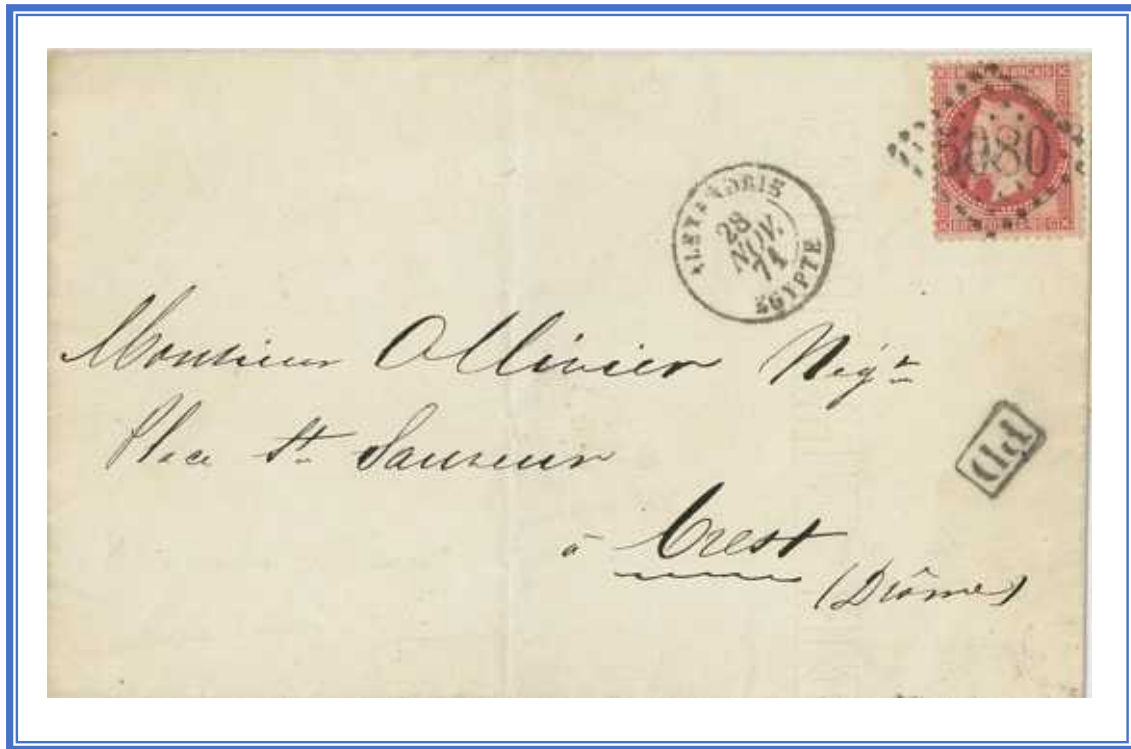 5080
ALEXANDRIE
28
NOV.
71
EGYPTE
Monsieur Ollivier Nég.t
Place St Sauveur
PD
à Crest
(Drôme)